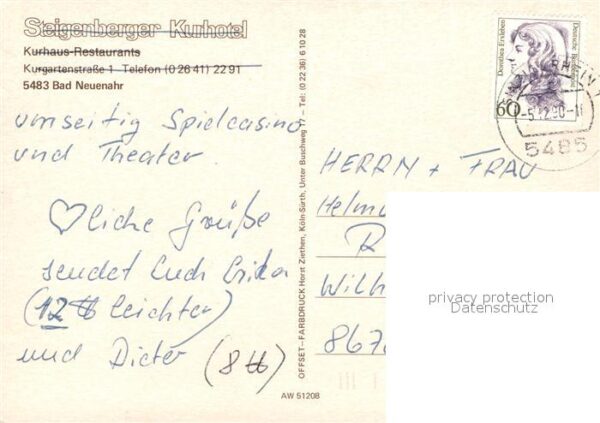 Steigenberger Kurhotel
Kurhaus-Restaurants
Kurgartenstraße 1 Telefon (0 26 41) 22 91
5483 Bad Neuenahr
umseitig Spielcasino
und Theater.
♡liche Grüße
sendet Euch Erika
(12 ℔ leichter)
und Dieter (8 ℔)
OFFSET–FARBDRUCK Horst Ziethen, Köln-Sürth, Unter Buschweg 17 – Tel: (0 22 36) 6 10 28
AW 51208
Dorothea Erxleben
Deutsche Bundespost
60
-5.12.90-11
5485
HERRN + FRAU
Helmu
R
Wilh
867
privacy protection
Datenschutz